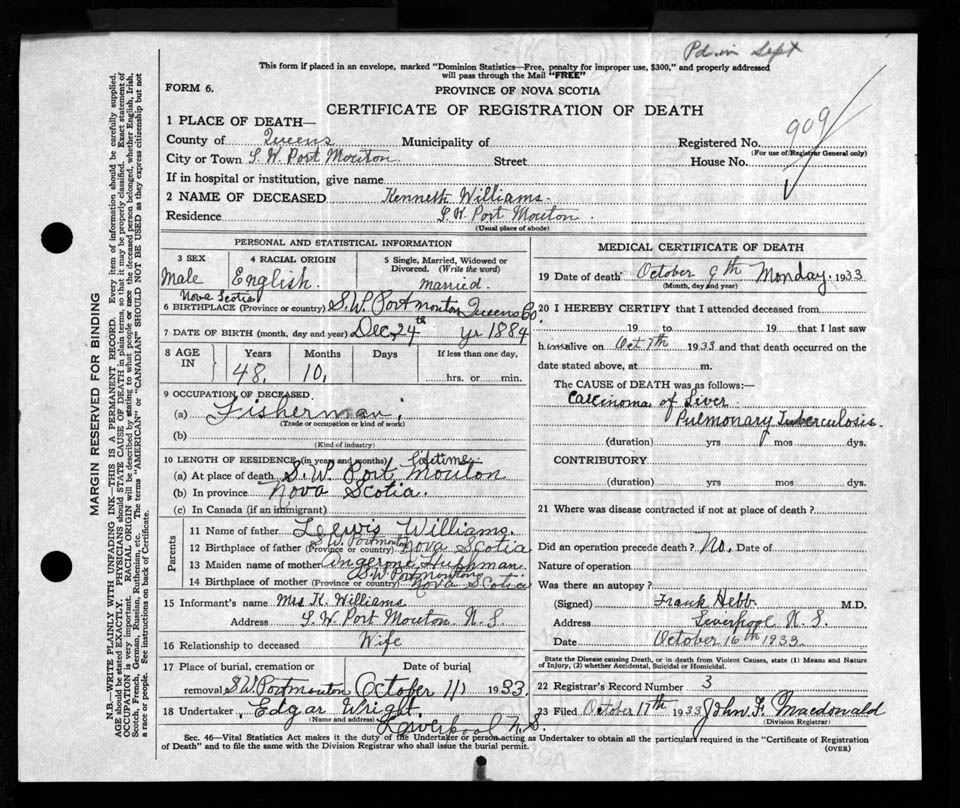 Pd. in Sept
This form if placed in an envelope, marked "Dominion Statistics—Free, penalty for improper use, $300," and properly addressed
will pass through the Mail "FREE"
FORM 6.
PROVINCE OF NOVA SCOTIA
CERTIFICATE OF REGISTRATION OF DEATH
909
1 PLACE OF DEATH—
County of Queens Municipality of Registered No.
(For use of Registrar General only)
City or Town S. W. Port Mouton Street House No.
If in hospital or institution, give name
2 NAME OF DECEASED Kenneth Williams.
Residence S. W. Port Mouton.
(Usual place of abode)
PERSONAL AND STATISTICAL INFORMATION
3 SEX 4 RACIAL ORIGIN 5 Single, Married, Widowed or
Divorced. (Write the word)
Male English. married.
Nova Scotia
6 BIRTHPLACE (Province or country) S. W. Portmouton Queens Co.
7 DATE OF BIRTH (month, day and year) Dec, 24th yr 1884
8 AGE IN Years Months Days If less than one day,
48, 10, hrs. or min.
9 OCCUPATION OF DECEASED.
(a) Fisherman
(Trade or occupation or kind of work)
(b)
(Kind of industry)
10 LENGTH OF RESIDENCE (in years and months) Lifetime.
(a) At place of death S. W. Port Mouton
(b) In province Nova Scotia.
(c) In Canada (if an immigrant)
Parents
11 Name of father Lewis Williams.
S. W. Portmouton
12 Birthplace of father (Province or country) Nova Scotia
13 Maiden name of mother Huphman.
S. W. Portmouton
14 Birthplace of mother (Province or country) Nova Scotia
15 Informant's name Mrs K. Williams
Address S. W. Port Mouton N. S.
16 Relationship to deceased Wife
17 Place of burial, cremation or Date of burial
removal S. W. Portmouton October 11, 1933.
18 Undertaker Edgar Wright,
(Name and address) Liverpool N. S.
MEDICAL CERTIFICATE OF DEATH
19 Date of death October 9th Monday. 1933
(Month, day and year)
20 I HEREBY CERTIFY that I attended deceased from
19 to 19 that I last saw
him alive on Oct 7th 1933 and that death occurred on the
date stated above, at m.
The CAUSE OF DEATH was as follows:—
Carcinoma of Liver.
Pulmonary Tuberculosis.
(duration) yrs mos dys.
CONTRIBUTORY
(duration) yrs mos dys.
21 Where was disease contracted if not at place of death ?
Did an operation precede death ? No, Date of
Nature of operation
Was there an autopsy ?
(Signed) Frank Hebb. M.D.
Address Liverpool N. S.
Date October 16th 1933.
State the Disease causing Death, or in death from Violent Causes, state (1) Means and Nature
of Injury, (2) whether Accidental, Suicidal or Homicidal.
22 Registrar's Record Number 3
23 Filed October 17th 1933 John F. Macdonald
(Division Registrar)
Sec. 46—Vital Statistics Act makes it the duty of the Undertaker or person acting as Undertaker to obtain all the particulars required in the "Certificate of Registration
of Death" and to file the same with the Division Registrar who shall issue the burial permit.
(OVER)
MARGIN RESERVED FOR BINDING
N.B.—WRITE PLAINLY WITH UNFADING INK—THIS IS A PERMANENT RECORD. Every item of information should be carefully supplied.
AGE should be stated EXACTLY. PHYSICIANS should STATE CAUSE OF DEATH in plain terms, so that it may be properly classified. Exact statement of
OCCUPATION is very important. RACIAL ORIGIN will be described by stating to what people or race the deceased person belonged, whether English, Irish,
Scotch, French, German, Russian, Ruthenian, etc. The terms "AMERICAN" or "CANADIAN" SHOULD NOT BE USED as they express citizenship but not
a race or people. See instructions on back of Certificate.